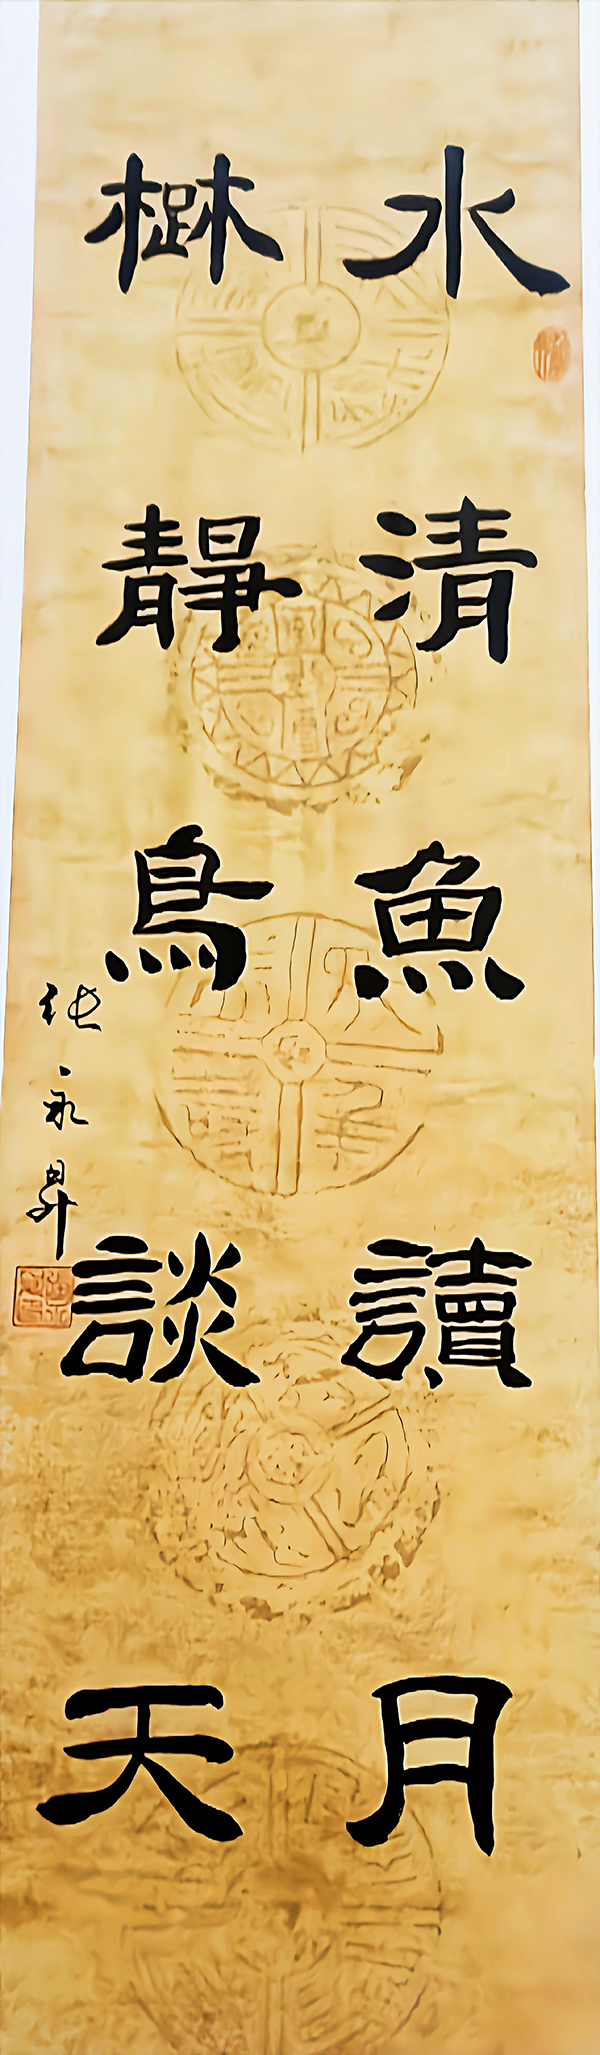 水清魚讀月
靜鳥談天
张永昇